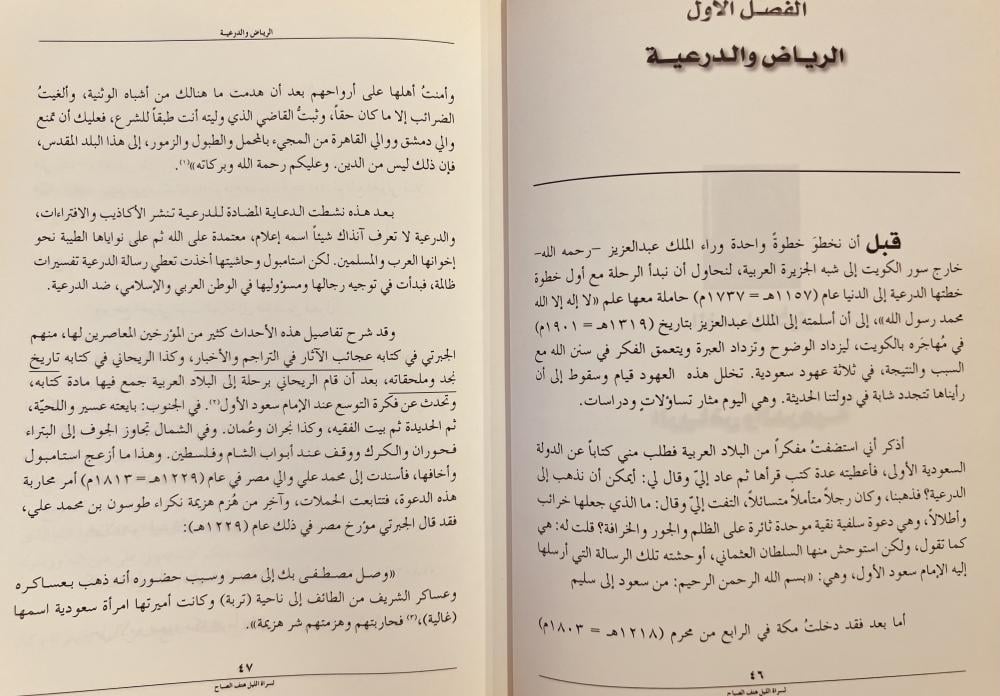 الفصل الأول
الرياض والدرعية
قبل أن نخطوَ خطوةً واحدة وراء الملك عبدالعزيز –رحمه الله–
خارج سور الكويت إلى شبه الجزيرة العربية، لنحاول أن نبدأ الرحلة مع أول خطوة
خطتها الدرعية إلى الدنيا عام (١١٥٧هـ = ١٧٣٧م) حاملة معها علم «لا إله إلا الله
محمد رسول الله»، إلى أن أسلمته إلى الملك عبدالعزيز بتاريخ (١٣١٩هـ = ١٩٠١م)
في مُهاجَره بالكويت، ليزداد الوضوح وتزداد العبرة ويتعمق الفكر في سنن الله مع
السبب والنتيجة، في ثلاثة عهود سعودية. تخلل هذه العهود قيام وسقوط إلى أن
رأيناها تتجدد شابة في دولتنا الحديثة. وهي اليوم مثار تساؤلات ودراسات.
أذكر أني استضفتُ مفكراً من البلاد العربية فطلب مني كتاباً عن الدولة
السعودية الأولى، فأعطيته عدة كتب قرأها ثم عاد إليّ وقال لي: أيمكن أن نذهب إلى
الدرعية؟ فذهبنا، وكان رجلاً متأملاً متسائلاً، التفت إليّ وقال: ما الذي جعلها خرائب
وأطلالاً، وهي دعوة سلفية نقية موحدة ثائرة على الظلم والجور والخرافة؟ قلت له: هي
كما تقول، ولكن استوحش منها السلطان العثماني، أوحشته تلك الرسالة التي أرسلها
إليه الإمام سعود الأول، وهي: «بسم الله الرحمن الرحيم: من سعود إلى سليم
أما بعد فقد دخلتُ مكة في الرابع من محرم (١٢١٨هـ = ١٨٠٣م)
٤٦
لسراة الليل هتف الصباح
الرياض والدرعية
وأمنتُ أهلها على أرواحهم بعد أن هدمت ما هنالك من أشباه الوثنية، وألغيتُ
الضرائب إلا ما كان حقاً، وثبتُّ القاضي الذي وليته أنت طبقاً للشرع، فعليك أن تمنع
والي دمشق ووالي القاهرة من المجيء بالمحمل والطبول والزمور، إلى هذا البلد المقدس،
فإن ذلك ليس من الدين. وعليكم رحمة الله وبركاته»(١).
بعد هذه نشطت الدعاية المضادة للدرعية تنشر الأكاذيب والافتراءات،
والدرعية لا تعرف آنذاك شيئاً اسمه إعلام، معتمدة على الله ثم على نواياها الطيبة نحو
إخوانها العرب والمسلمين. لكن استامبول وحاشيتها أخذت تعطي رسالة الدرعية تفسيرات
ظالمة، فبدأت في توجيه رجالها ومسؤوليها في الوطن العربي والإسلامي، ضد الدرعية.
وقد شرح تفاصيل هذه الأحداث كثير من المؤرخين المعاصرين لها، منهم
الجبرتي في كتابه عجائب الآثار في التراجم والأخبار، وكذا الريحاني في كتابه تاريخ
نجد وملحقاته، بعد أن قام الريحاني برحلة إلى البلاد العربية جمع فيها مادة كتابه،
وتحدث عن فكرة التوسع عند الإمام سعود الأول(٢). في الجنوب: بايعته عسير واللحيّة،
ثم الحديدة ثم بيت الفقيه، وكذا نجران وعُمان. وفي الشمال تجاوز الجوف إلى البتراء
فحوران والكرك ووقف عند أبواب الشام وفلسطين. وهذا ما أزعج استامبول
وأخافها، فأسندت إلى محمد علي والي مصر في عام (١٢٢٩هـ = ١٨١٣م) أمر محاربة
هذه الدعوة، فتتابعت الحملات، وآخِر من هُزم هزيمة نكراء طوسون بن محمد علي،
فقد قال الجبرتي مؤرخ مصر في ذلك عام (١٢٢٩هـ):
«وصل مصطفى بك إلى مصر وسبب حضوره أنه ذهب بعساكره
وعساكر الشريف من الطائف إلى ناحية (تربة) وكانت أميرتها امرأة سعودية اسمها
(غالية)،(٣) فحاربتهم وهزمتهم شر هزيمة».
٤٧
لسراة الليل هتف الصباح